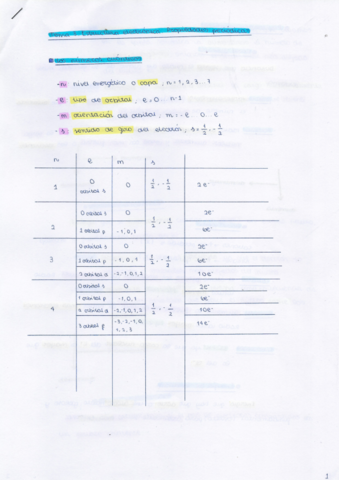 Tema 1: Estructura atómica. Propiedades periódicas
Los números cuánticos
- n: nivel energético o capa, n = 1, 2, 3...7
- l: tipo de orbital, l = 0... n-1
- m: orientación del orbital, m = -l...0...l
- s: sentido de giro del electrón, s = 1/2, -1/2
n l m s
1 0 orbital s 0 1/2, -1/2 2e⁻
2 0 orbital s 0 1/2, -1/2 2e⁻
1 orbital p -1, 0, 1 6e⁻
3 0 orbital s 0 1/2, -1/2 2e⁻
1 orbital p -1, 0, 1 6e⁻
2 orbital d -2, -1, 0, 1, 2 10e⁻
4 0 orbital s 0 1/2, -1/2 2e⁻
1 orbital p -1, 0, 1
2 orbital d -2, -1, 0, 1, 2 10e⁻
3 orbital -3, -2, -1, 0, 1, 2, 3 14e⁻
1